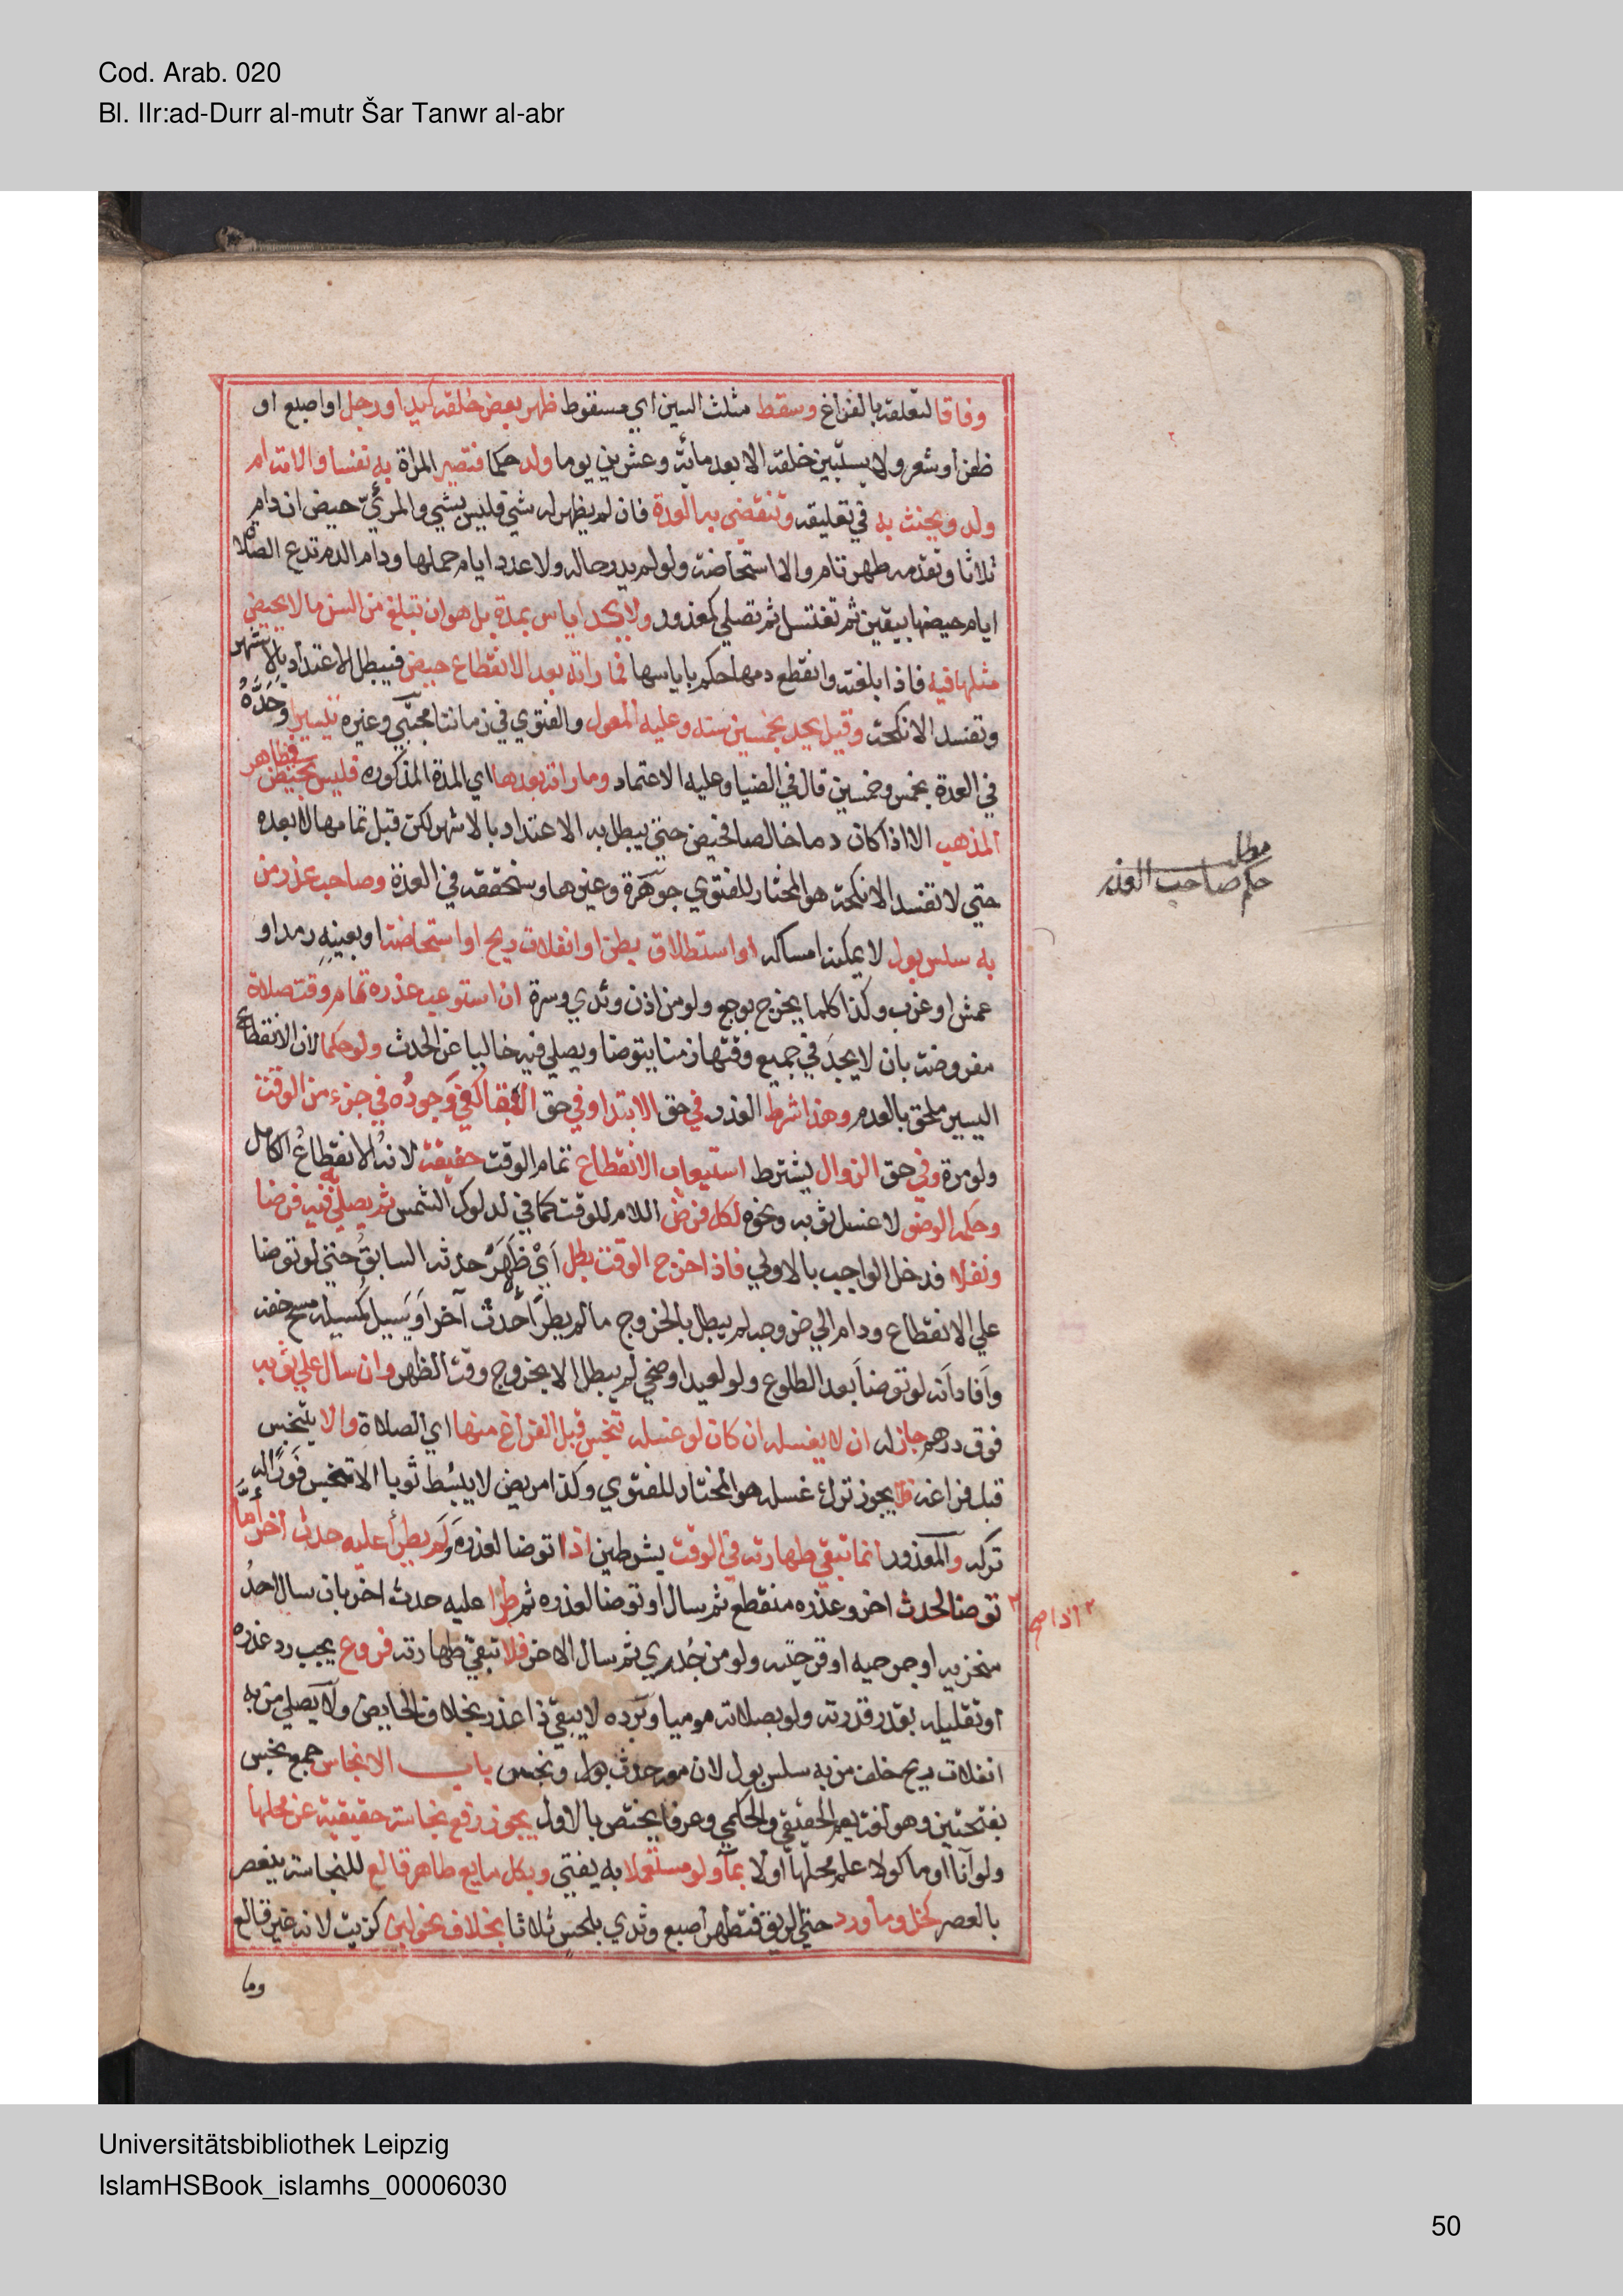 Cod. Arab. 020
Bl. IIr:ad-Durr al-mutr Šar Tanwr al-abr
وفاقا لتعلقه بالفراغ وسقط مثلث السين اي مسقوط ظهر بعض خلقه كيد او رجل او اصبع او
ظفر او شعر ولا يستبين خلقه الا بعد مائة وعشرين يوما ولد حكما فتصير المراة به نفسا والامة ام
ولد ويحنث به في تعليقه وتنقضي به العدة فان لم يظهر له شي فليس بشي والمرئي حيض ان دام
ثلاثا وتقدمه طهر تام والا استحاضة ولو لم يدر حاله ولا عدد ايام حملها ودام الدم تدع الصلاة
ايام حيضها بيقين ثم تغتسل ثم تصلي كمعذور ولا يحد اياس بمدة بل هو ان تبلغ من السن ما لا يحيض
مثلها فيه فاذا بلغته وانقطع دمها حكم باياسها فما راته بعد الانقطاع حيض فيبطل الاعتداد بالاشهر
وتفسد الانكحة وقيل يحد بخمسين سنه وعليه المعول والفتوي في زماننا مجتبي وغيره تيسيرا وحده
في العدة بخمس وخمسين قال في الضيا وعليه الاعتماد وما راته بعدها اي المدة المذكوره فليس بحيض في ظاهر
المذهب الا اذا كان دما خالصا فحيض حتي يبطل به الاعتداد بالاشهر لكن قبل تمامها لا بعده
حتي لا تفسد الانكحة هو المختار للفتوي جوهرة وغيرها وسنحققه في العدة وصاحب عذر من
به سلس بول لا يمكنه امساكه او استطلاق بطن او انفلات ريح او استحاضة او بعينه رمد او
عمش او غرب وكذا كلما يخرج بوجع ولو من اذن وثدي وسرة ان استوعب عذره تمام وقت صلاة
مفروضة بان لا يجد في جميع وقتها زمنا يتوضا ويصلي فيه خاليا عن الحدث ولو حكما لان الانقطاع
اليسير ملحق بالعدم وهذا شرط العذر في حق الابتدا وفي حق البقا كفي وجوده في جزء من الوقت
ولو مرة وفي حق الزوال يشترط استيعاب الانقطاع تمام الوقت حقيقة لانه الانقطاع الكامل
وحكمه الوضو لا غسل ثوبه ونحوه لكل فرض اللام للوقت كما في لدلوك الشمس ثم يصلي به فيه فرضا
ونفلا فدخل الواجب بالاولي فاذا خرج الوقت بطل اي ظهر حدثه السابق حتي لو توضا
علي الانقطاع ودام الي خروجه لم يبطل بالخروج ما لم يطرا حدث آخر او يسيل كمسيلة مسح خفه
وافاد انه لو توضا بعد الطلوع ولو لعيد او ضحي لم يبطل الا بخروج وقت الظهر وان سال علي ثوبه
فوق درهم جاز له ان لا يغسله ان كان لو غسله تنجس قبل الفراغ منها اي الصلاة والا يتنجس
قبل فراغه فلا يجوز ترك غسله هو المختار للفتوي وكذا مريض لا يبسط ثوبا الا تنجس فورا له
تركه والمعذور انما تبقي طهارته في الوقت بشرطين اذا توضا لعذره ولم يطرأ عليه حدث اخر أما
توضا لحدث اخر وعذره منقطع ثم سال او توضا لعذره ثم طرا عليه حدث اخر بان سال احد
منخريه او جرحيه او قرحتيه ولو من جدري ثم سال الاخر فلا تبقي طهارته فروع يجب رد عذره
او تقليله بقدر قدرته ولو بصلاته موميا وبرده لا يبقي ذا عذر بخلاف الحايض ولا يصلي من به
انفلات ريح خلف من به سلس بول لان معه حدث ونجس باب الانجاس جمع نجس
بفتحتين وهو لغة يعم الحقيقي والحكمي وعرفا يختص بالاول يجوز رفع نجاسة حقيقية عن محلها
ولو اناا او ماكولا علم محلها او لا بماء ولو مستعملا به يفتي وبكل مايع طاهر قالع للنجاسة ينعصر
بالعصر كخل وما ورد حتي الريق فتطهر اصبع وثدي بلحس ثلاثا بخلاف نحو لبن كزيت لانه غير قالع
وما
مطلب
حكم صاحب العذر
اذا صح
Universitätsbibliothek Leipzig
IslamHSBook_islamhs_00006030
50